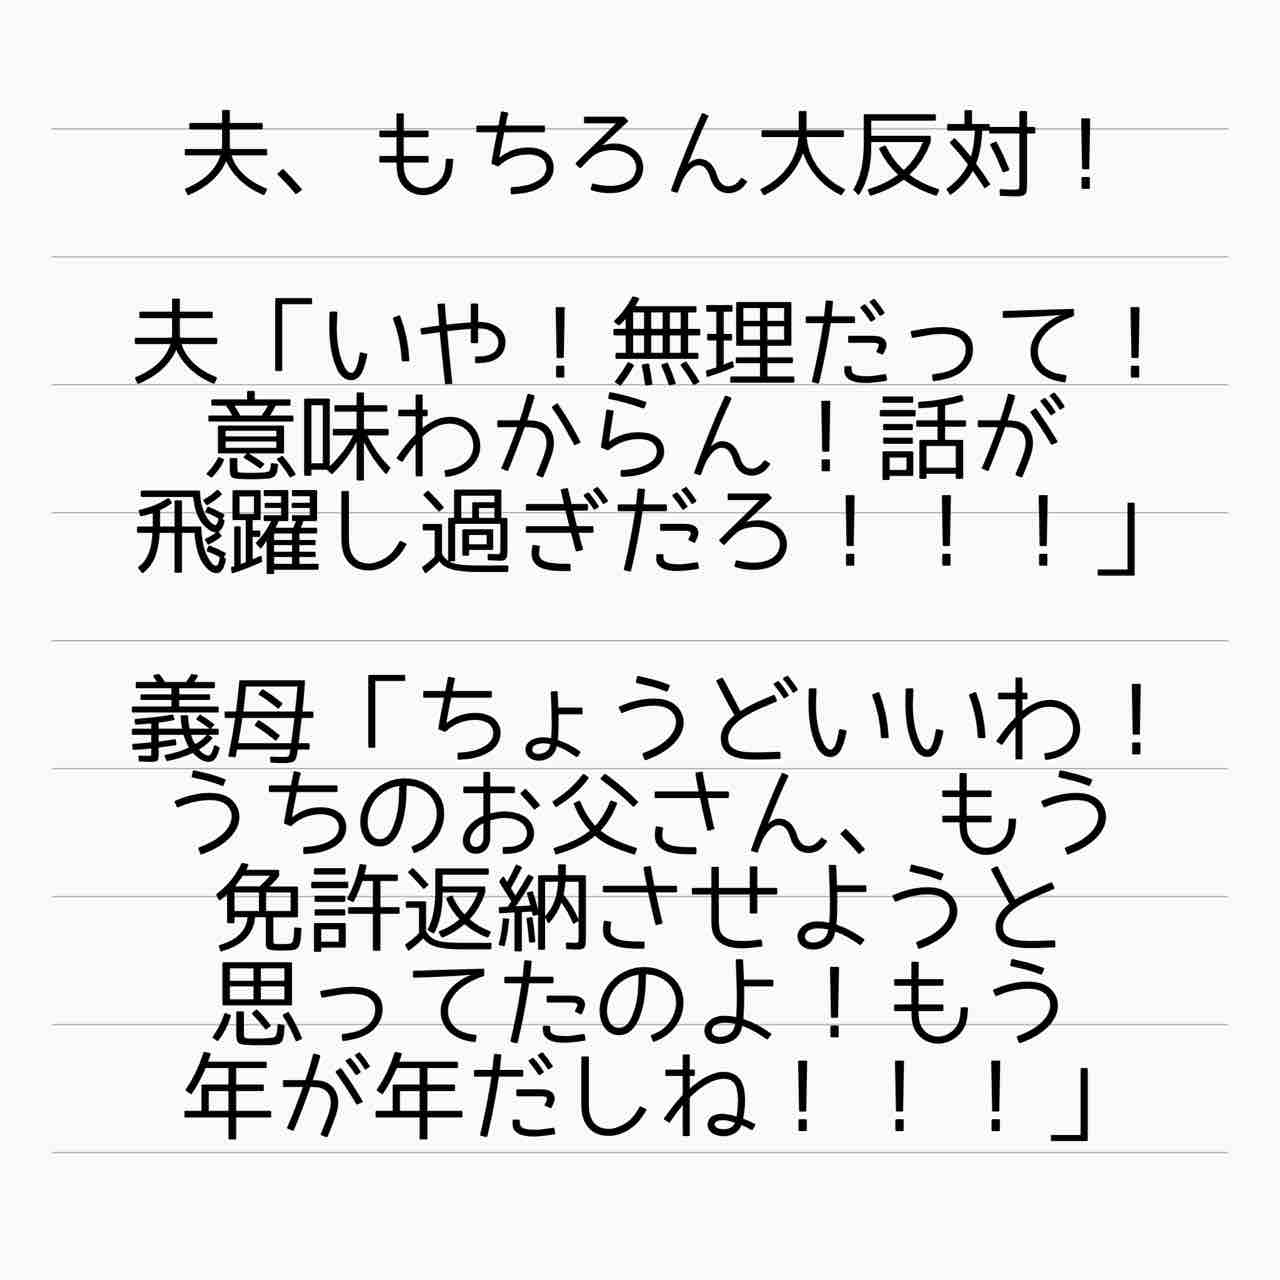 夫、もちろん大反対！
夫「いや！無理だって！
意味わからん！話が
飛躍し過ぎだろ！！！」
義母「ちょうどいいわ！
うちのお父さん、もう
免許返納させようと
思ってたのよ！もう
年が年だしね！！！」